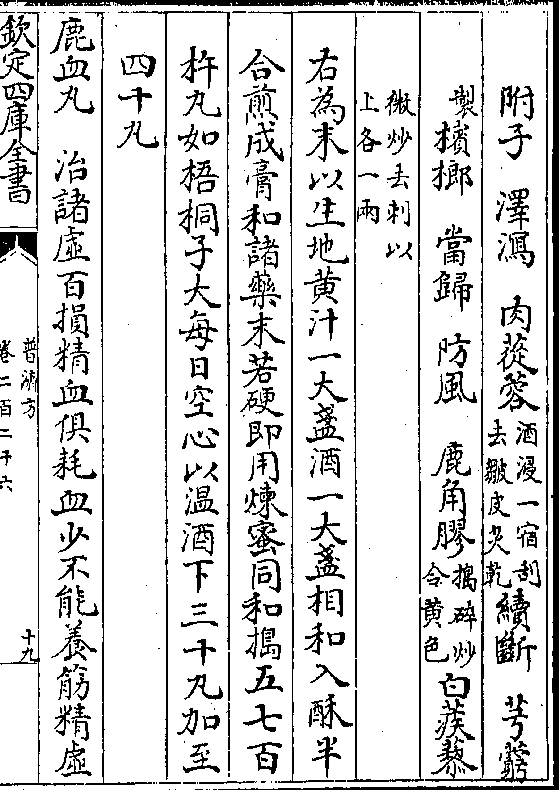 附子　澤瀉　肉蓯蓉酒浸一宿刮去皺皮炙乾續斷　芎藭
製檳榔　當歸　防風　鹿角膠搗碎炒令黄色白蒺藜
微炒去刺以上各一兩
右為末以生地黄汁一大盞酒一大盞相和入酥半
合煎成膏和諸藥末若硬即用煉蜜同和搗五七百
杵丸如梧桐子大每日空心以温酒下三十丸加至
四十丸
鹿血丸　治諸虚百損精血俱耗血少不能養筋精虚
欽定四庫全書
普濟方
卷二百二十六
十九